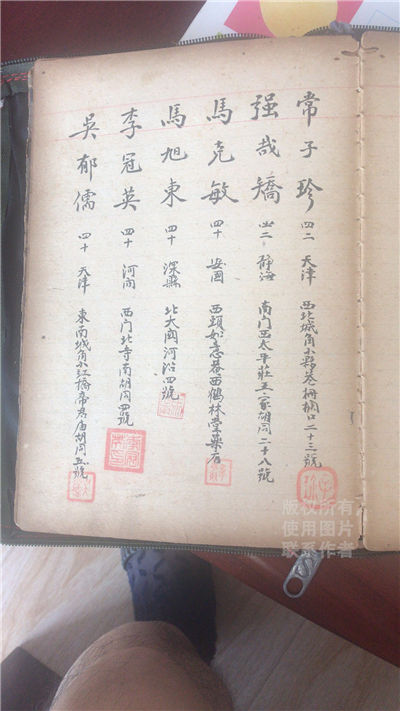 常子珍 四二 天津 西北城角小夥巷柵欄口二十三號
强哉矯 四二 靜海 南門西太平莊王家胡同二十八號
馬克敏 四十 安國 西頭如意菴西鶴林堂藥店
馬旭東 四十 深縣 北大關河沿四號
李冠英 四十 河間 西門北寺南胡同四號
吳郁儒 四十 天津 東南城角小江橋帝君廟胡同五號
版权所有
使用图片
联系作者